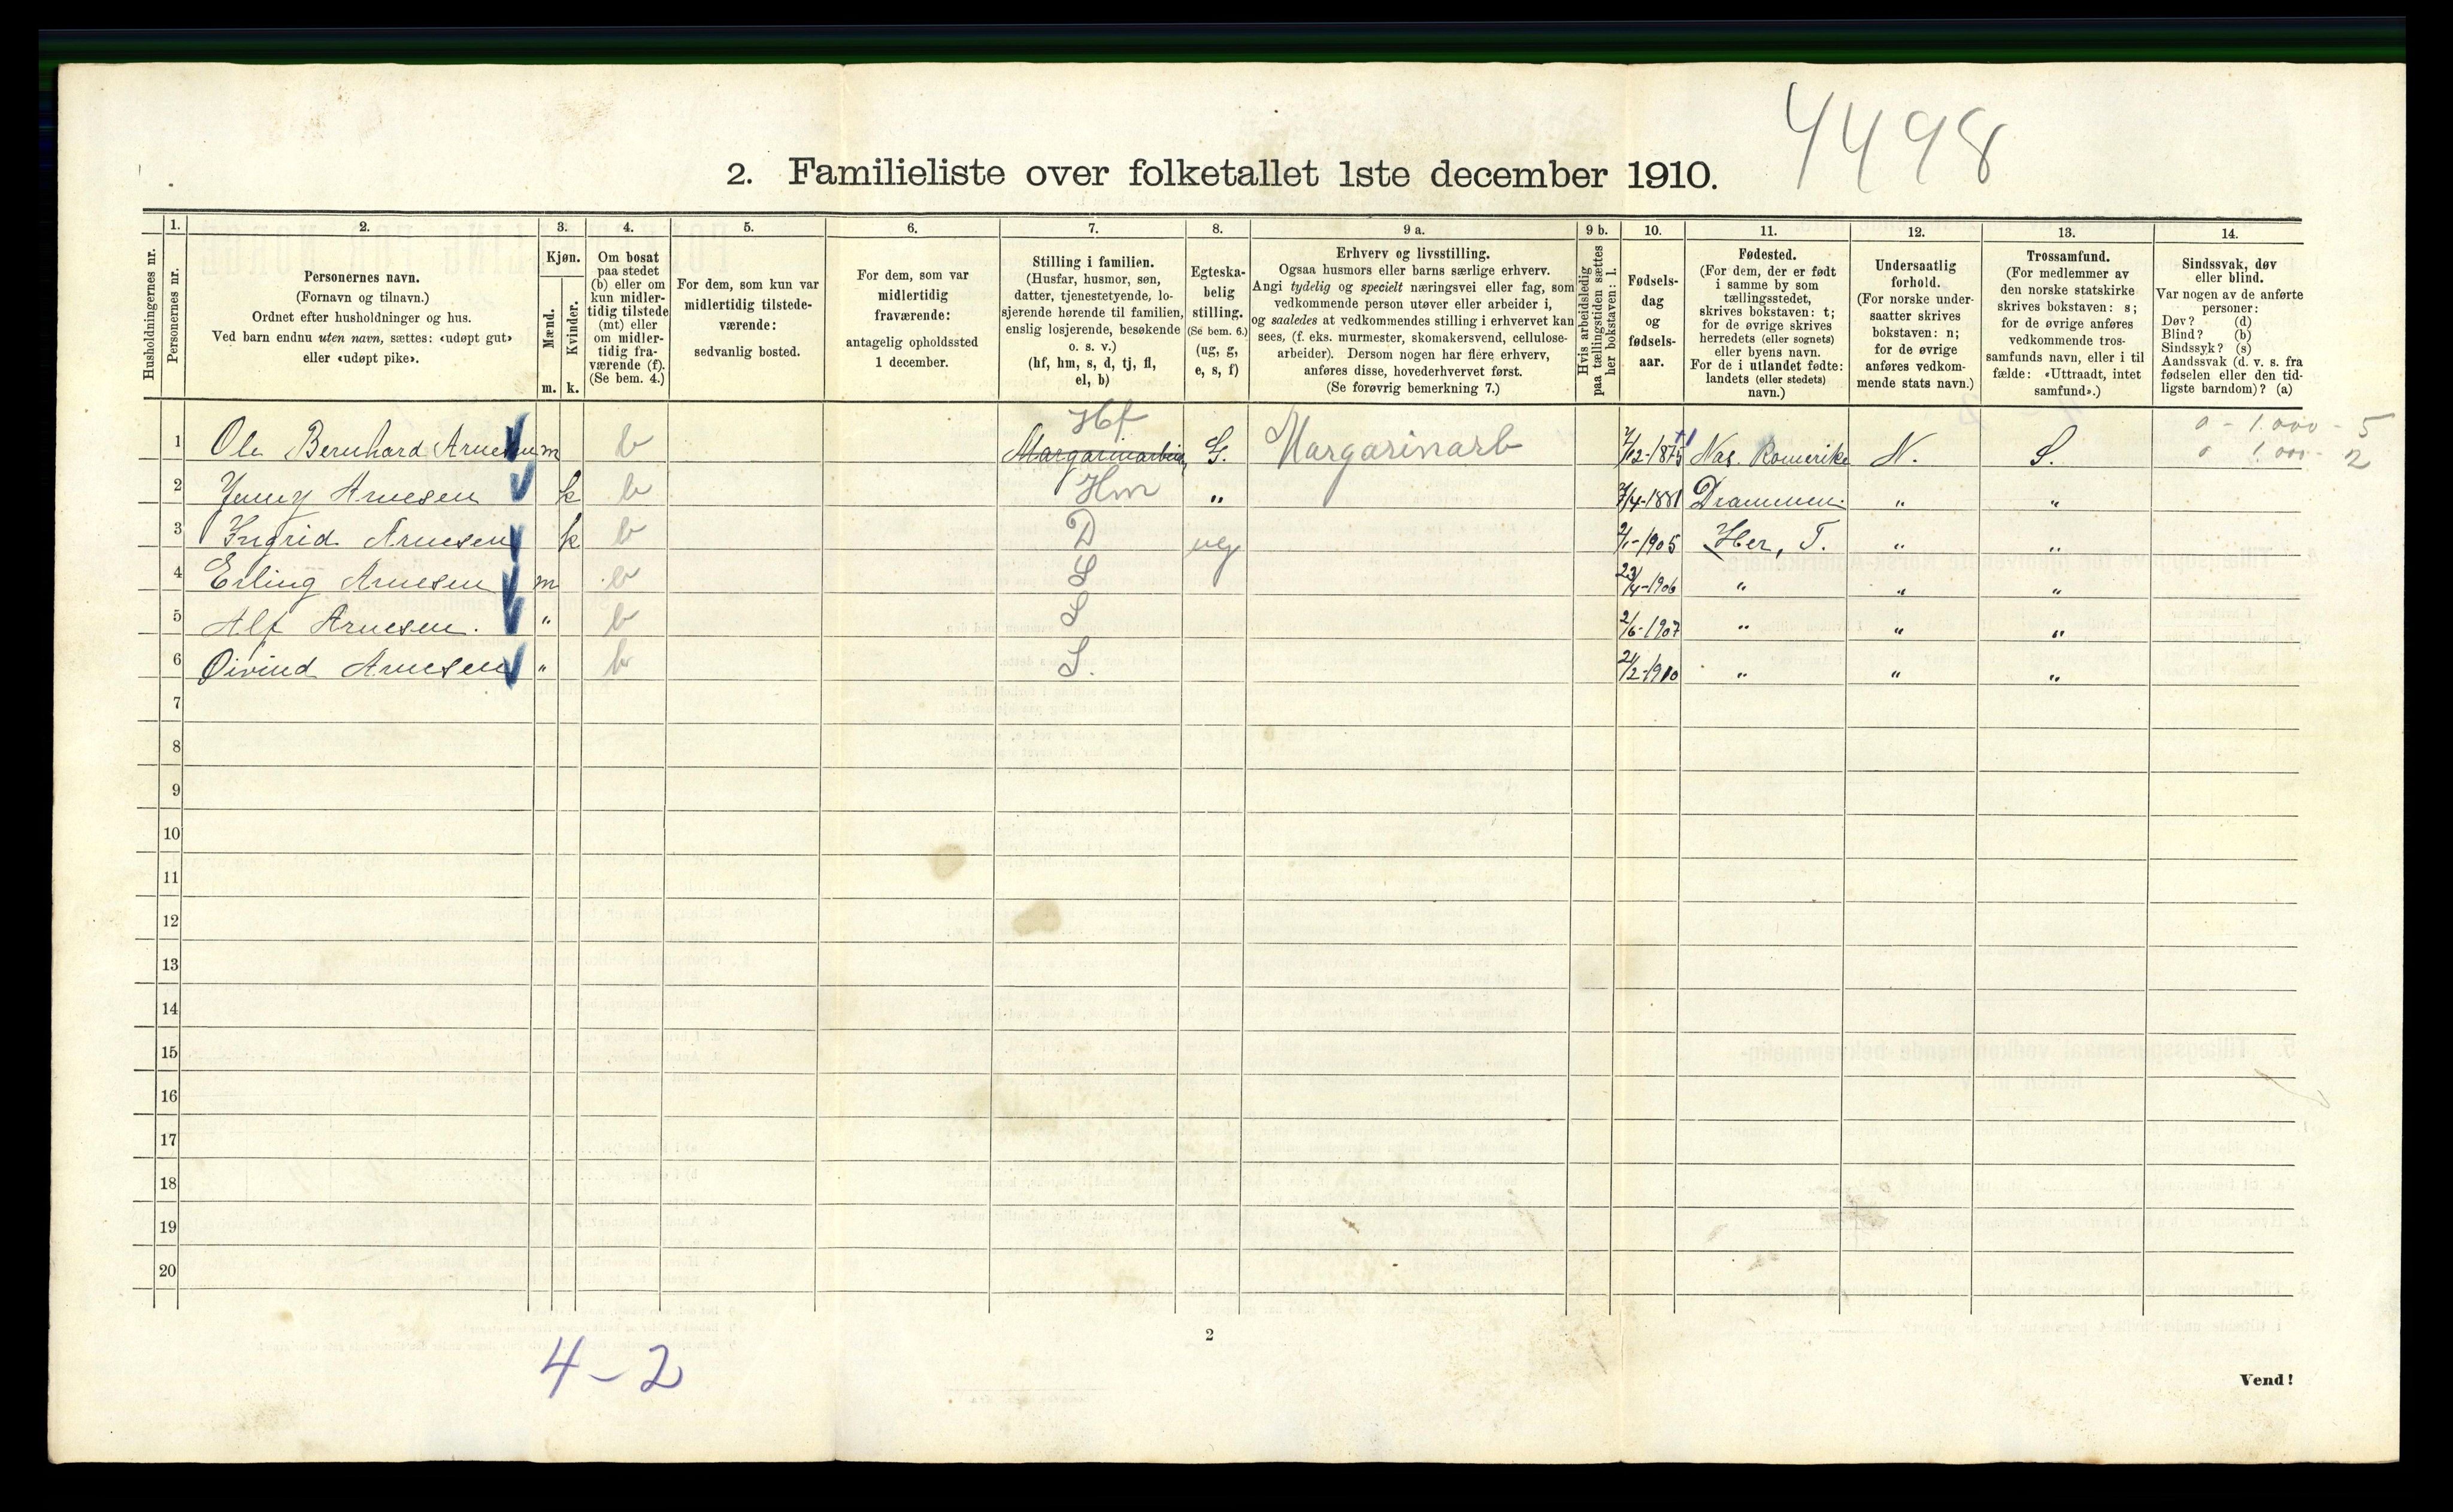 4498
2. Familieliste over folketallet 1ste december 1910.
Husholdningernes nr.
1. Personernes nr.
2. Personernes navn.
(Fornavn og tilnavn.)
Ordnet efter husholdninger og hus.
Ved barn endnu uten navn, sættes: «udøpt gut»
eller «udøpt pike».
3. Kjøn.
Mænd. m.
Kvinder. k.
4. Om bosat
paa stedet
(b) eller om
kun midler-
tidig tilstede
(mt) eller
om midler-
tidig fra-
værende (f).
(Se bem. 4.)
5. For dem, som kun var
midlertidig tilstede-
værende:
sedvanlig bosted.
6. For dem, som var
midlertidig
fraværende:
antagelig opholdssted
1 december.
7. Stilling i familien.
(Husfar, husmor, søn,
datter, tjenestetyende, lo-
sjerende hørende til familien,
enslig losjerende, besøkende
o. s. v.)
(hf, hm, s, d, tj, fl,
el, b)
8. Egteska-
belig
stilling.
(Se bem. 6.)
(ug, g,
e, s, f)
9 a. Erhverv og livsstilling.
Ogsaa husmors eller barns særlige erhverv.
Angi tydelig og specielt næringsvei eller fag, som
vedkommende person utøver eller arbeider i,
og saaledes at vedkommendes stilling i erhvervet kan
sees, (f. eks. murmester, skomakersvend, cellulose-
arbeider). Dersom nogen har flere erhverv,
anføres disse, hovederhvervet først.
(Se forøvrig bemerkning 7.)
9 b. Hvis arbeidsledig
paa tællingstiden sættes
her bokstaven: l.
10. Fødsels-
dag
og
fødsels-
aar.
11. Fødested.
(For dem, der er født
i samme by som
tællingsstedet,
skrives bokstaven: t;
for de øvrige skrives
herredets (eller sognets)
eller byens navn.
For de i utlandet fødte:
landets (eller stedets)
navn.)
12. Undersaatlig
forhold.
(For norske under-
saatter skrives
bokstaven: n;
for de øvrige
anføres vedkom-
mende stats navn.)
13. Trossamfund.
(For medlemmer av
den norske statskirke
skrives bokstaven: s;
for de øvrige anføres
vedkommende tros-
samfunds navn, eller i til
fælde: «Uttraadt, intet
samfund».)
14. Sindssvak, døv
eller blind.
Var nogen av de anførte
personer:
Døv? (d)
Blind? (b)
Sindssyk? (s)
Aandssvak (d. v. s. fra
fødselen eller den tid-
ligste barndom)? (a)
Hf 0 - 1.000 - 5
1 Ole Bernhard Arnesen m b Margarinarbeid. G. Margarinarb 7/12-1875 Nas. Romerike N. S. 0 1.000 - 2
2 Jenny Arnesen k b Hm " 7/4-1881 Drammen " "
3 Ingrid Arnesen k b D ug 2/1-1905 Her, T. " "
4 Erling Arnesen m b S 23/4-1906 " " "
5 Alf Arnesen. " b S 2/6-1907 " " "
6 Øivind Arnesen " b S. 21/2-1910 " " "
7
8
9
10
11
12
13
14
15
16
17
18
19
20
2
4-2
Vend!